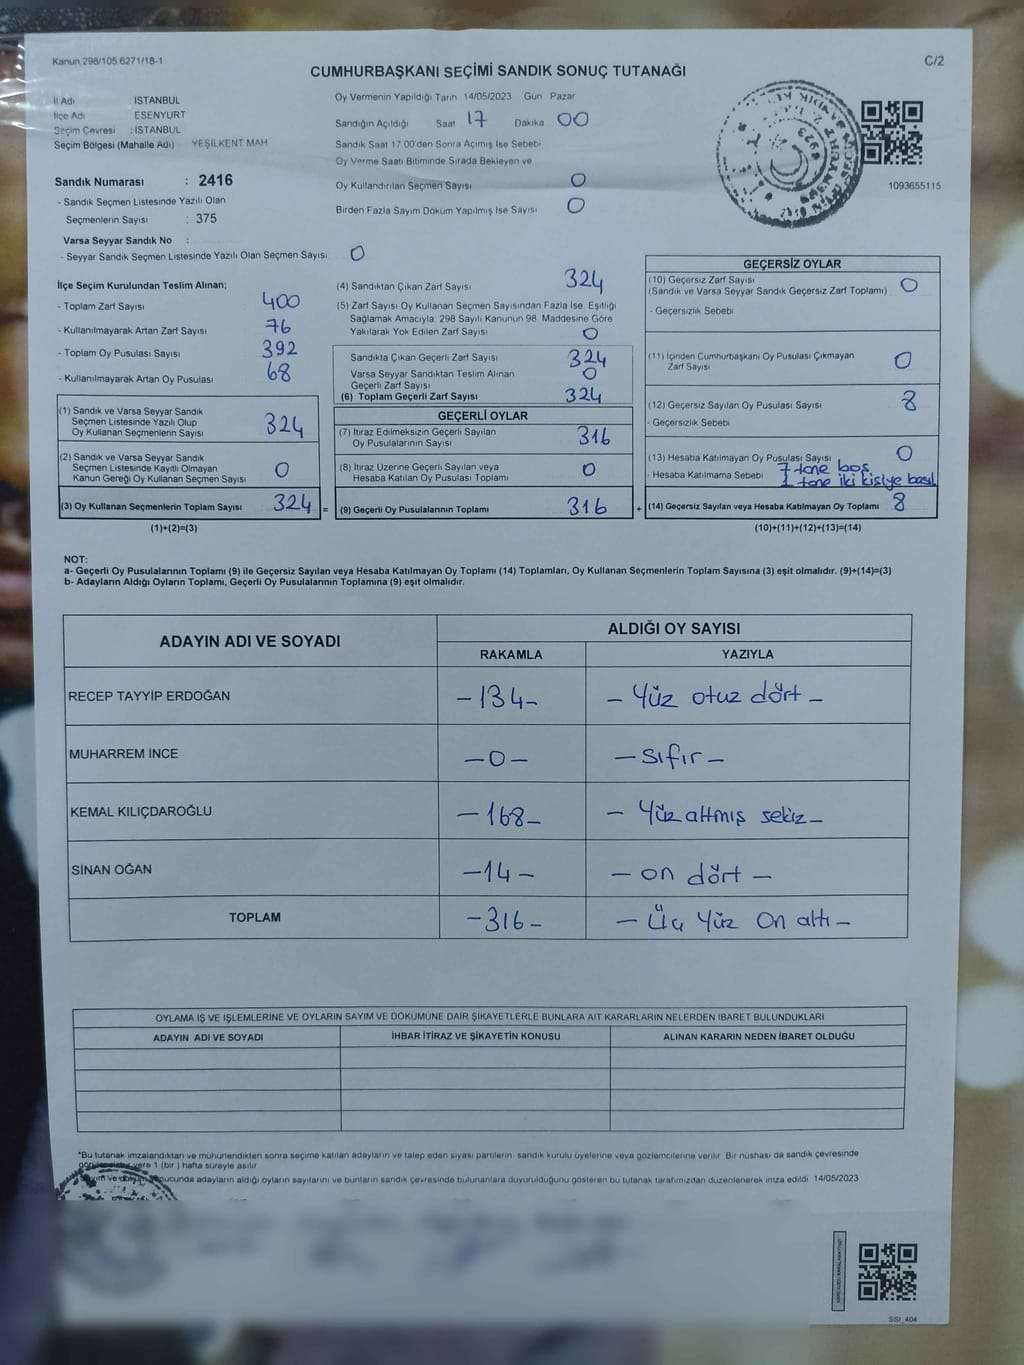 Kanun 298/105 6271/18-1
C/2
CUMHURBAŞKANI SEÇİMİ SANDIK SONUÇ TUTANAĞI
İl Adı İSTANBUL
İlçe Adı ESENYURT
Seçim Çevresi : İSTANBUL
Seçim Bölgesi (Mahalle Adı) YEŞİLKENT MAH
Oy Vermenin Yapıldığı Tarih 14/05/2023 Gün Pazar
Sandığın Açıldığı Saat 17 Dakika 00
Sandık Saat 17 00'den Sonra Açımış İse Sebebi
Oy Verme Saati Bitiminde Sırada Bekleyen ve
Oy Kullandırılan Seçmen Sayısı 0
Birden Fazla Sayım Döküm Yapılmış İse Sayısı 0
1093655115
Sandık Numarası : 2416
- Sandık Seçmen Listesinde Yazılı Olan
Seçmenlerin Sayısı : 375
Varsa Seyyar Sandık No :
- Seyyar Sandık Seçmen Listesinde Yazılı Olan Seçmen Sayısı 0
İlçe Seçim Kurulundan Teslim Alınan;
- Toplam Zarf Sayısı 400
- Kullanılmayarak Artan Zarf Sayısı 76
- Toplam Oy Pusulası Sayısı 392
- Kullanılmayarak Artan Oy Pusulası 68
(1) Sandık ve Varsa Seyyar Sandık
Seçmen Listesinde Yazılı Olup
Oy Kullanan Seçmenlerin Sayısı 324
(2) Sandık ve Varsa Seyyar Sandık
Seçmen Listesinde Kayıtlı Olmayan
Kanun Gereği Oy Kullanan Seçmen Sayısı 0
(3) Oy Kullanan Seçmenlerin Toplam Sayısı 324 =
(1)+(2)=(3)
(4) Sandıktan Çıkan Zarf Sayısı 324
(5) Zarf Sayısı Oy Kullanan Seçmen Sayısından Fazla İse, Eşitliği
Sağlamak Amacıyla, 298 Sayılı Kanunun 98. Maddesine Göre
Yakılarak Yok Edilen Zarf Sayısı 0
Sandıkta Çıkan Geçerli Zarf Sayısı 324
Varsa Seyyar Sandıktan Teslim Alınan
Geçerli Zarf Sayısı 0
(6) Toplam Geçerli Zarf Sayısı 324
GEÇERLİ OYLAR
(7) İtiraz Edilmeksizin Geçerli Sayılan
Oy Pusulalarının Sayısı 316
(8) İtiraz Üzerine Geçerli Sayılan veya
Hesaba Katılan Oy Pusulası Toplamı 0
(9) Geçerli Oy Pusulalarının Toplamı 316 +
GEÇERSİZ OYLAR
(10) Geçersiz Zarf Sayısı
(Sandık ve Varsa Seyyar Sandık Geçersiz Zarf Toplamı) 0
- Geçersizlik Sebebi
(11) İçinden Cumhurbaşkanı Oy Pusulası Çıkmayan
Zarf Sayısı 0
(12) Geçersiz Sayılan Oy Pusulası Sayısı 8
- Geçersizlik Sebebi
(13) Hesaba Katılmayan Oy Pusulası Sayısı 0
- Hesaba Katılmama Sebebi 7 tane boş
1 tane iki kişiye basıl
(14) Geçersiz Sayılan veya Hesaba Katılmayan Oy Toplamı 8
(10)+(11)+(12)+(13)=(14)
NOT:
a- Geçerli Oy Pusulalarının Toplamı (9) ile Geçersiz Sayılan veya Hesaba Katılmayan Oy Toplamı (14) Toplamları, Oy Kullanan Seçmenlerin Toplam Sayısına (3) eşit olmalıdır. (9)+(14)=(3)
b- Adayların Aldığı Oyların Toplamı, Geçerli Oy Pusulalarının Toplamına (9) eşit olmalıdır.
ADAYIN ADI VE SOYADI
ALDIĞI OY SAYISI
RAKAMLA YAZIYLA
RECEP TAYYİP ERDOĞAN -134- - Yüz otuz dört -
MUHARREM İNCE -0- - sıfır -
KEMAL KILIÇDAROĞLU -168- - Yüz altmış sekiz -
SİNAN OĞAN -14- - on dört -
TOPLAM -316- - Üç Yüz On altı -
OYLAMA İŞ VE İŞLEMLERİNE VE OYLARIN SAYIM VE DÖKÜMÜNE DAİR ŞİKAYETLERLE BUNLARA AİT KARARLARIN NELERDEN İBARET BULUNDUKLARI
ADAYIN ADI VE SOYADI İHBAR İTİRAZ VE ŞİKAYETİN KONUSU ALINAN KARARIN NEDEN İBARET OLDUĞU
*Bu tutanak imzalandıktan ve mühürlendikten sonra seçime katılan adayların ve talep eden siyasi partilerin sandık kurulu üyelerine veya gözlemcilerine verilir Bir nüshası da sandık çevresinde
yere 1 (bir ) hafta süreyle asılır
ve döküm sonucunda adayların aldığı oyların sayılarını ve bunların sandık çevresinde bulunanlara duyurulduğunu gösteren bu tutanak tarafımızdan düzenlenerek imza edildi 14/05/2023
SSI_404